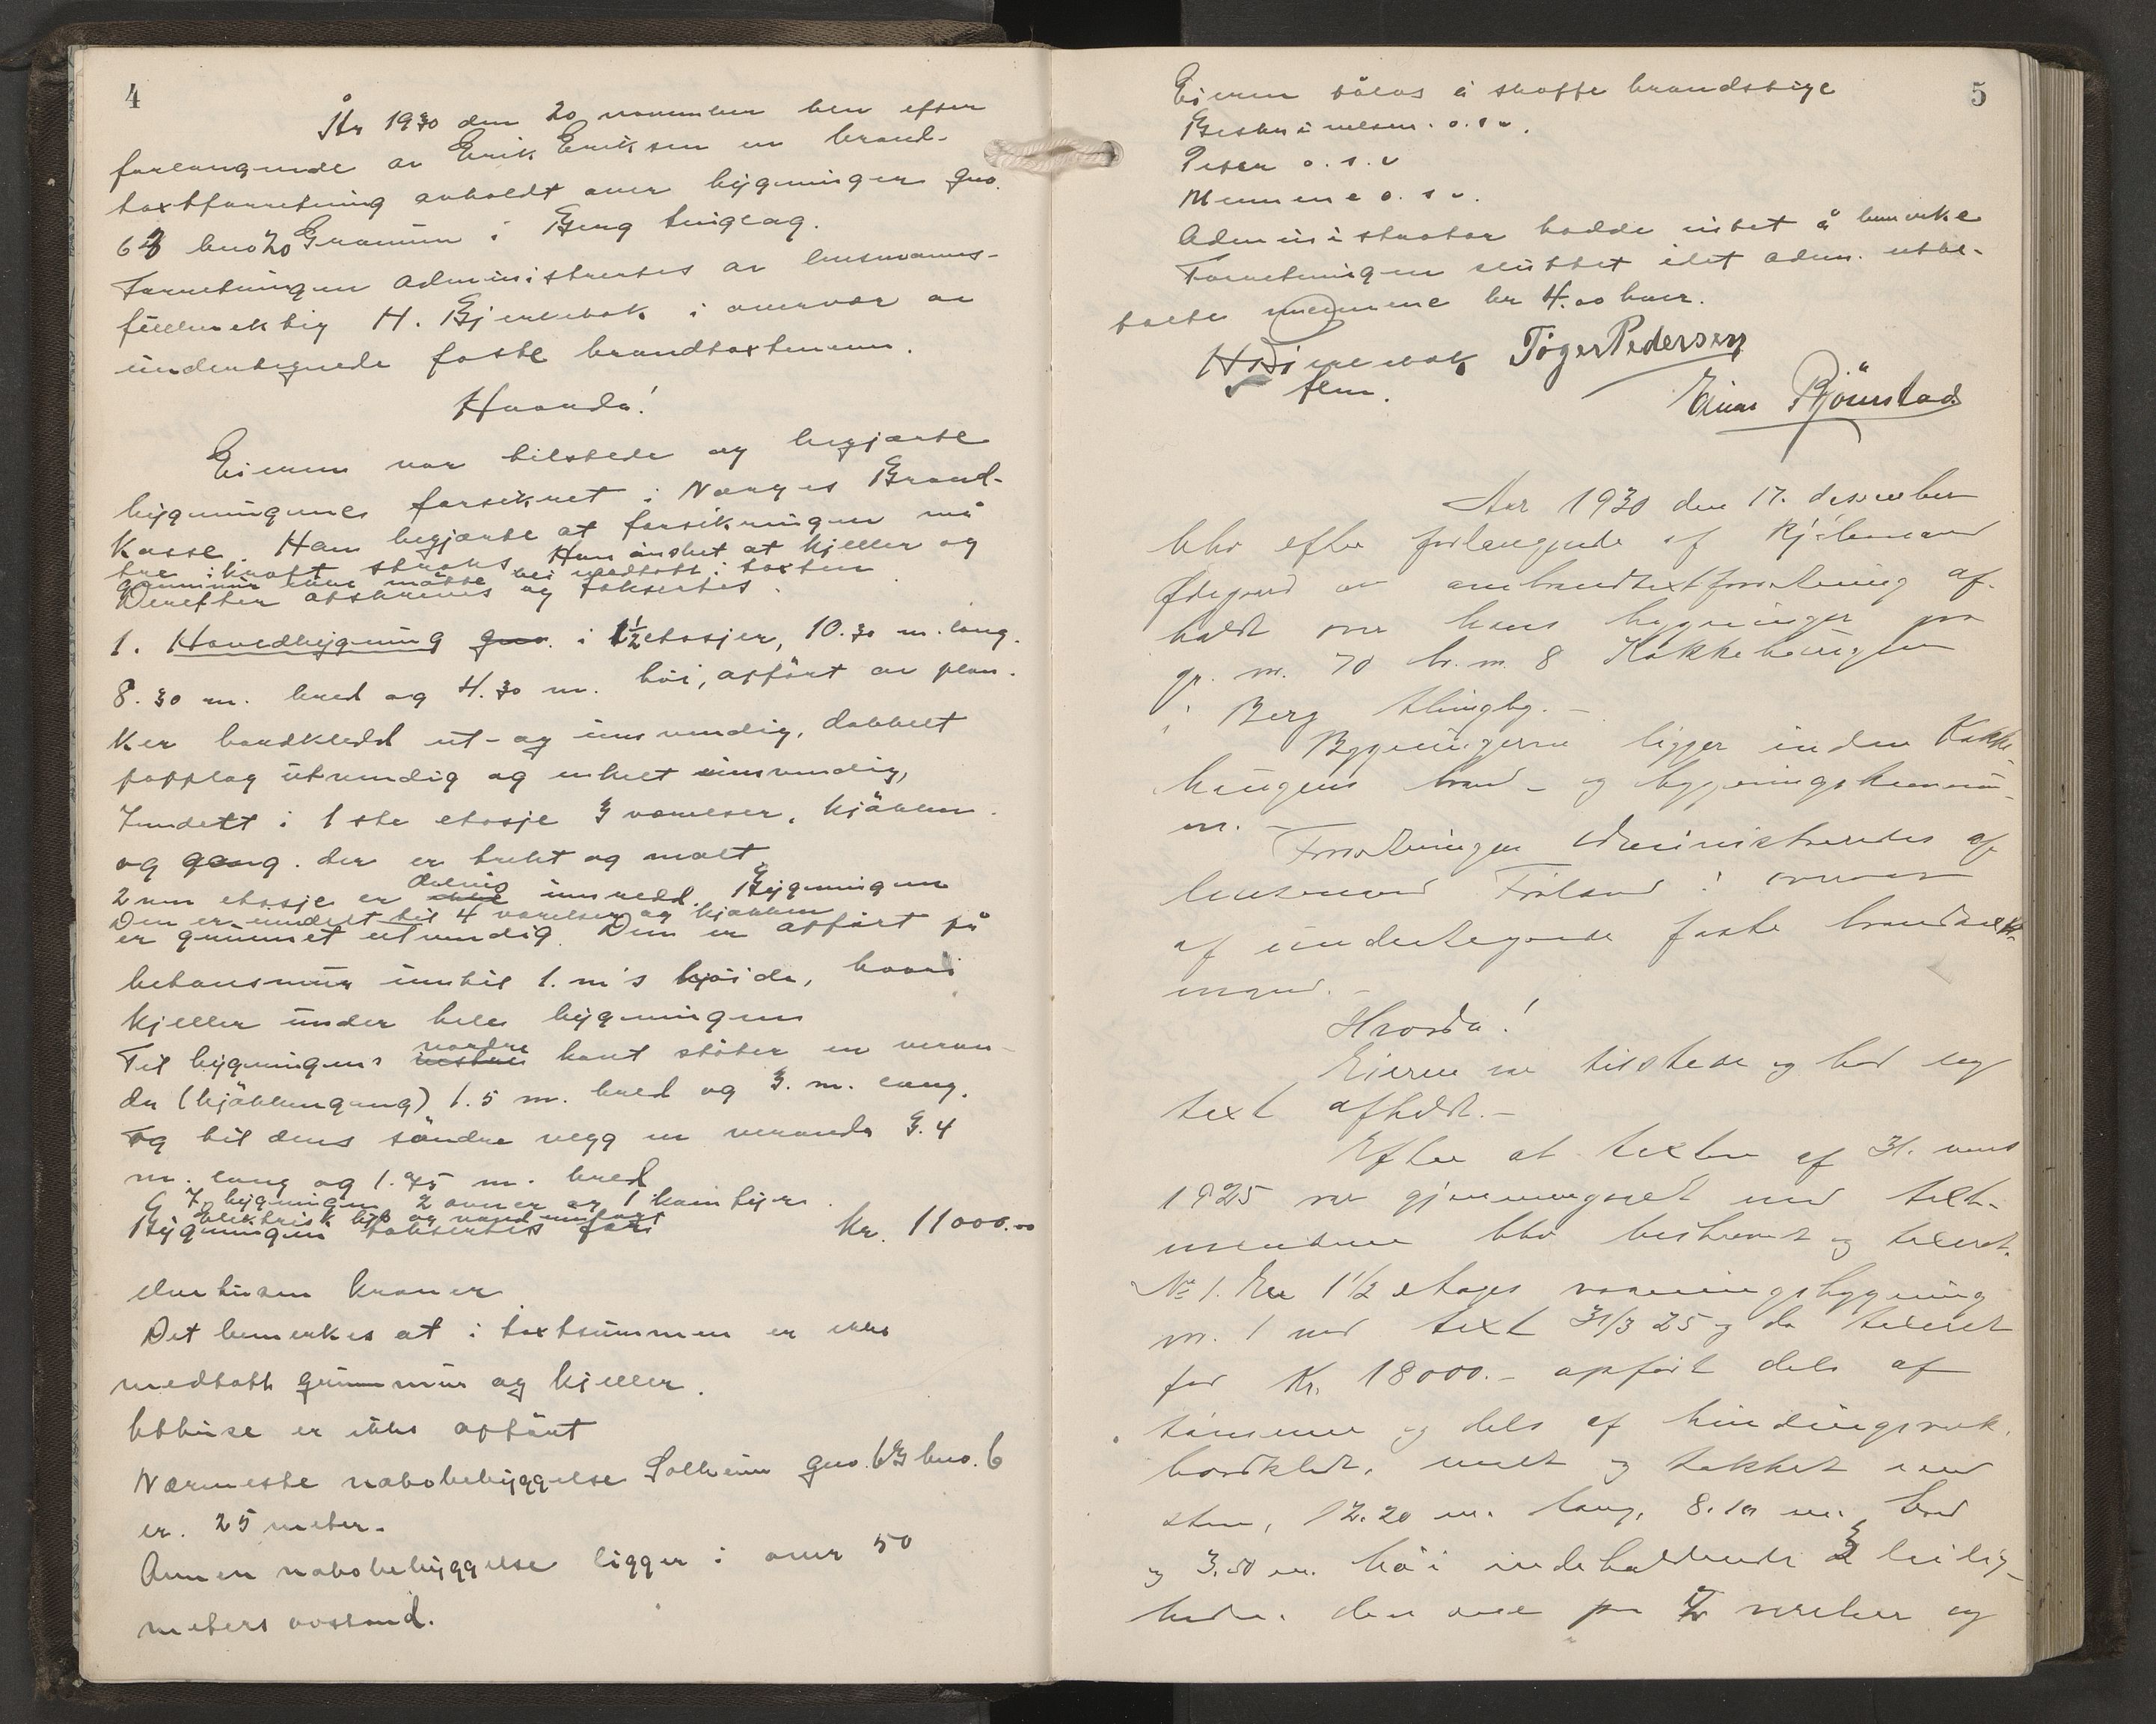 4
År 1930 den 20 november blev efter
forlangende av Erik Eriksen en brand-
taxtforretning avholdt over bygninger gno.
63 bno 20 Granum i Berg tinglag.
Forretningen administrertes av lensmanns-
fullmektig H. Bjerkebak i overvær av
undertegnede faste brandtaxtmenn.
Hvorda!
Eieren var tilstede og begjærte
bygningenes forsikret i Norges Brand-
kasse. Han begjærte at forsikringen må
tre i kraft straks. Han ønsket at kjeller og
grunnmur ikke måtte bli medtatt i taxten
Derefter beskreves og taksertes.
1. Hovedbygning gno. i 1½ etasjer, 10.30 m. lang.
8.30 m. bred og 4.30 m. høi, opført av plan-
ker bordkledd ut- og innvendig, dobbelt
papplag utvendig og enkelt innvendig,
Inndelt i 1ste etasje 3 værelser, kjøkken
og gang. der er trukt og malt
2nen etasje er delvis innredd. Bygningen
Den er inndelt til 4 værelser og kjøkken
er grunnet utvendig. Den er opført på
betonsmur inntil 1. m's høide, hvori
kjeller under hele bygningen
Til bygningens vestre nordre kant støter en veran-
da (kjøkkengang) 1.5 m. bred og 3. m. lang.
og til dens søndre vegg en veranda 3.4
m. lang og 1.95 m. bred
I bygningen 2 ovner og 1 komfyr.
elektrisk lys og vand innført
Bygningen taksertes for kr. 11000.00
elvetusen kroner
Det bemerkes at i taxtsummen er ikke
medtatt grunnmur og kjeller.
Uthuse er ikke opført
Nærmeste nabobebyggelse Solheim gno. 63 bno. 6
er. 25 meter.
Annen nabobebyggelse ligger i over 50
meters avstand.
5
Eieren påløs å skaffe brandstige
Beskrivelsen. o.s.v.
Piper o.s.v
Mennene o.s.v.
Administrator hadde intet å bemerke
Forretningen sluttet idet adm. utbe-
talte mennene kr 4.00 hver.
H Bjerkebak Tøger Pedersen
flm.
Einar Bjørnstad
Aar 1930 den 17. desember
blev efter forlangende af Kjøbmand
Ødegaard en ombrandtaxtforretning af-
holdt over hans bygninger paa
gr. nr. 70 br. nr. 8 Kakkehaugen
i Berg thinglag.-
Bygningerne ligger inden Kakke-
haugens brand- og bygningskommu-
ne.-
Forretningen administreredes af
lensmand i overvær
af undertegnede faste brandtaxt-
mænd.-
Hvorda!
Eieren var tilstede og bad sig
taxt afholdt.-
Efter at taxten af 31. mars
1925 var gjennemgaaet med taxt-
mændene blev beskrevet og taxeret.
No 1. En 1½ etages vaaningsbygning
nr. 1 ved taxt 31/3 25 og da taxeret
for Kr. 18000.- opført dels af
tømmer og dels af bindingsverk,
bordklædt, malt og tækket med
sten, 12.20 m. lang, 8.10 m. bred
og 3.50 m. høi indeholdende 3 leilig-
heder. den ene paa 2 værelser og